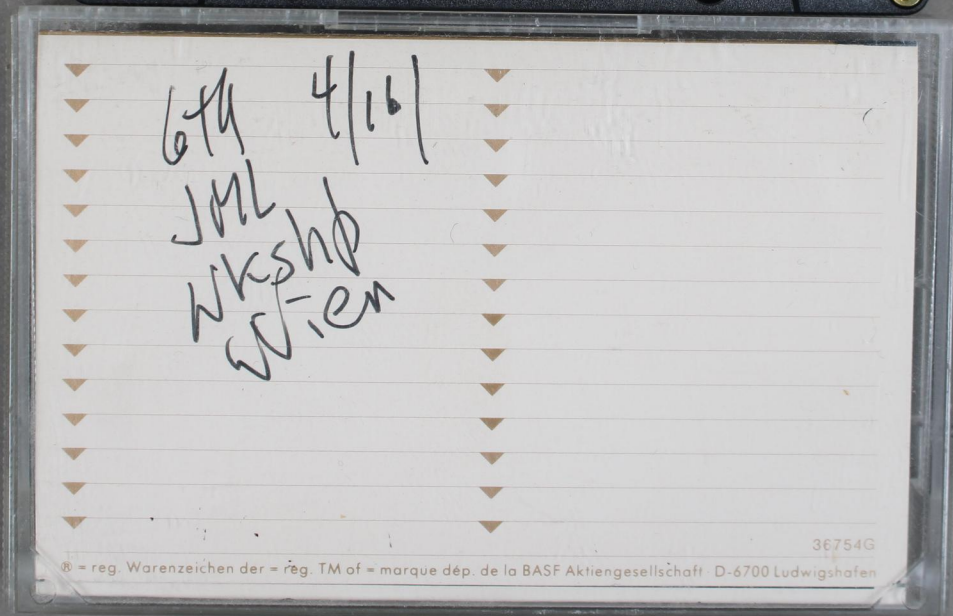 6th 4/16/
JML
Wkshp
Wien
36754G
® = reg. Warenzeichen der = reg. TM of = marque dép. de la BASF Aktiengesellschaft D-6700 Ludwigshafen